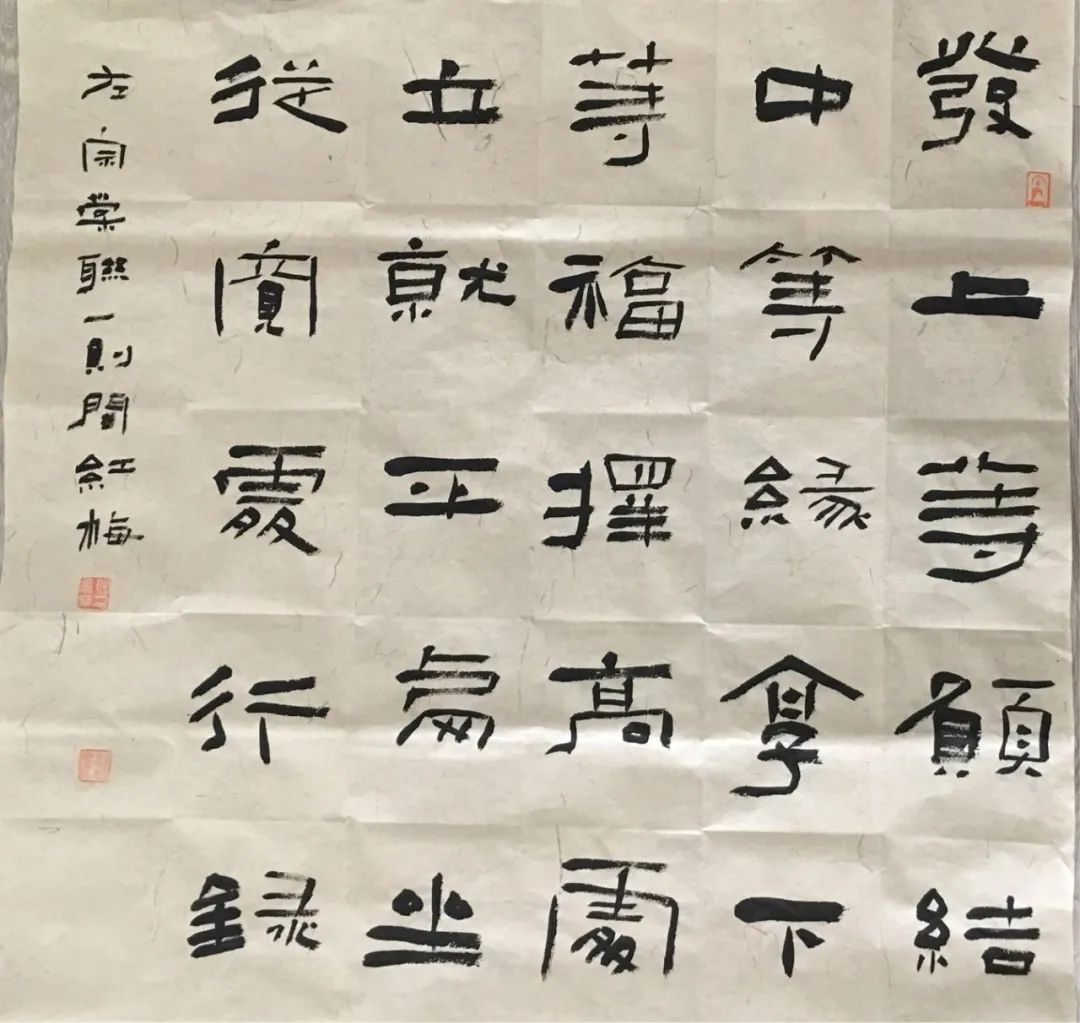 發上等願結
中等緣享下
等福擇高處
立就平處坐
從寬處行錄
左宗棠聯一則閆紅梅